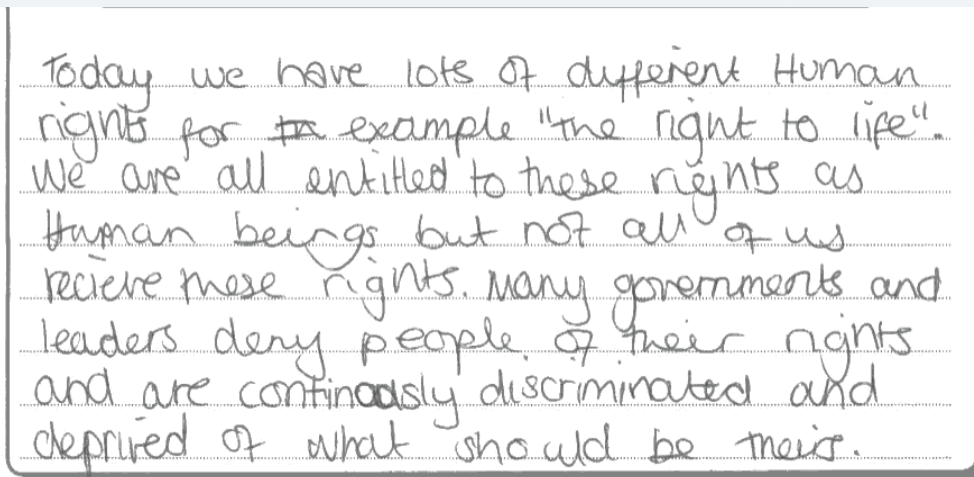 Today we have lots of different Human
rights for example "the right to life".
We are all entitled to these rights as
Human beings but not all of us
recieve these rights. Many governments and
leaders deny people of their rights
and are continoously discriminated and
deprived of what should be theirs.